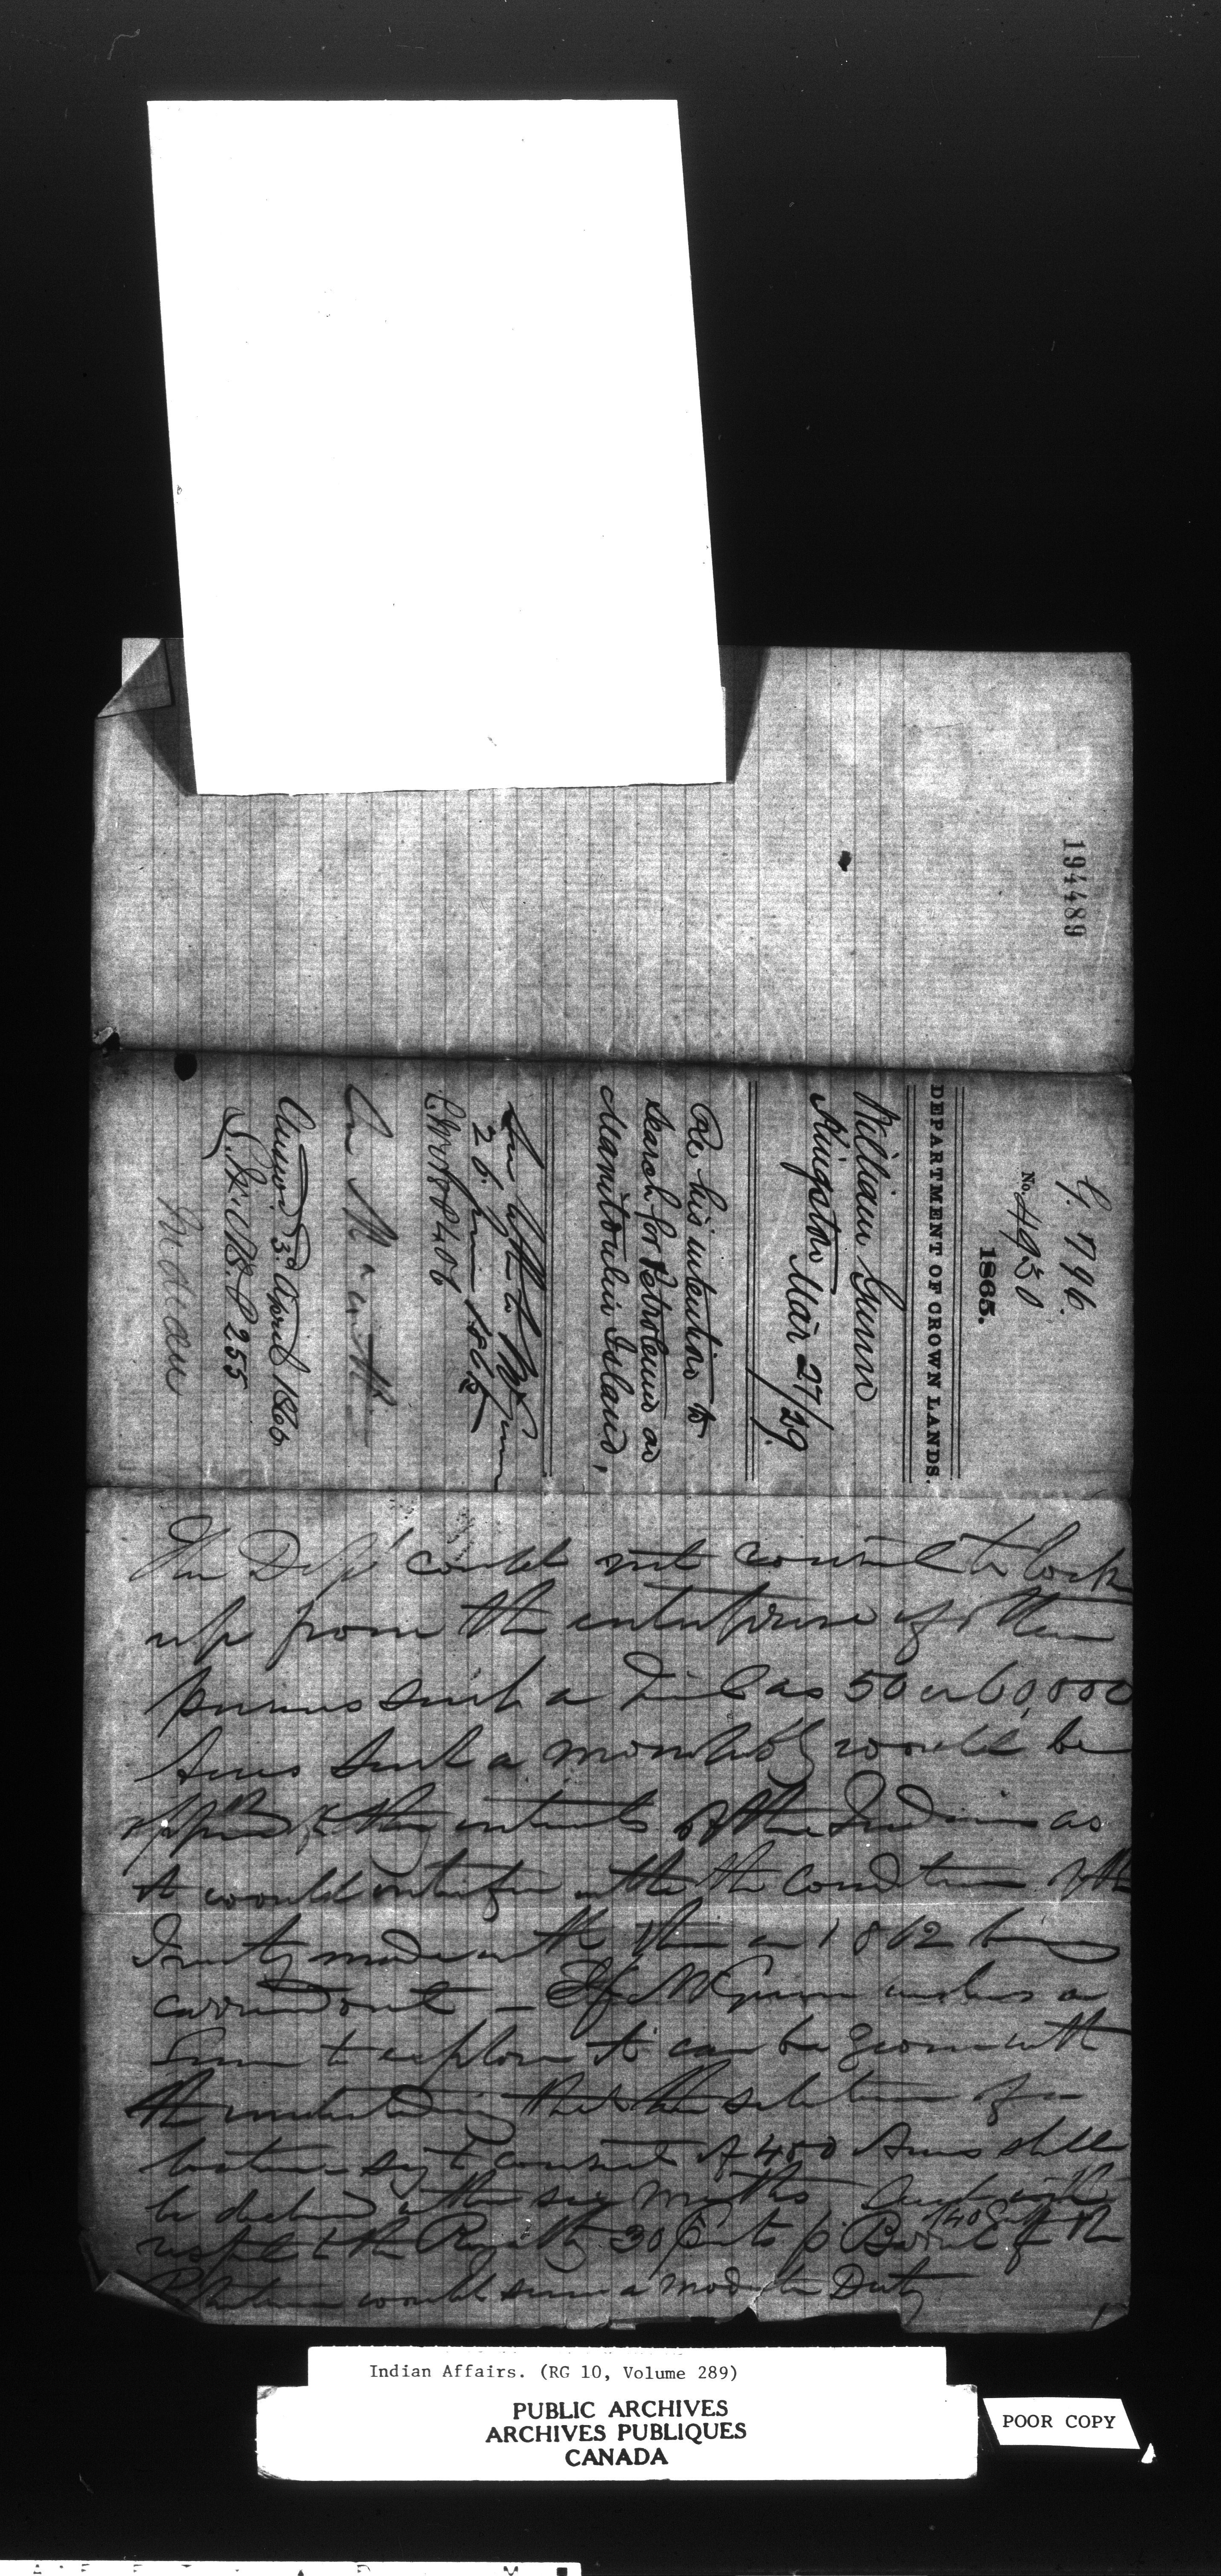 194489
G. 796.
No. 4930
1865.
DEPARTMENT OF CROWN LANDS.
William Gunn
Kingston Mar 27/29.
Re his intention to
search for Petroleum on
Manitoulin Island,
See to Mr Gunn
26 1865
18406
Answd. 3d April 1866
L. B. P 255
Indian
The Dept could not consent to lock
up from the enterprise of other
persons such a as 50 or 60,000
Acres Such a monopoly would be
opposed to the interests of the Indians as
it would interfere with the Conditions of the
Treaty made with them in 1862 being
carried out - If Mr Gunn wishes a
to explore it can be given with
the understanding that the selection of a
location - say to consist of 400 Acres shall
be declared within six months, And with
respect to the Royalty 30 Cents p. Barrel of 40 of the
Petroleum would seem a moderate Duty
Indian Affairs. (RG 10, Volume 289)
PUBLIC ARCHIVES
ARCHIVES PUBLIQUES
CANADA
POOR COPY